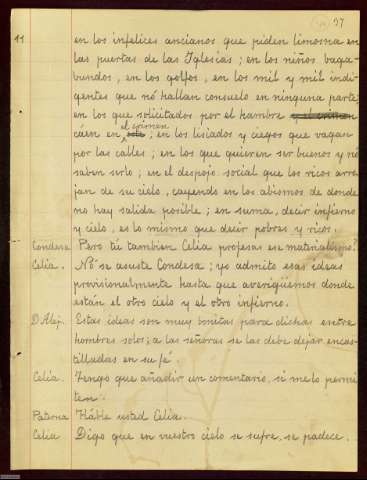 37
11 en los infelices ancianos que piden limosna en
las puertas de las Iglesias; en los niños baga-
bundos, en los golfos, en los mil y mil indi-
gentes que nó hallan consuelo en ninguna parte;
en los que solicitados por el hambre y el crimen
el crimen
caen en este; en los lisiados y ciegos que vagan
por las calles; en los que quieren ser buenos y nó
saben serlo; en el despojo social que los ricos arro-
jan de su cielo, cayendo en los abismos de donde
no hay salida posible; en suma, decir infierno
y cielo, es lo mismo que decir pobres y ricos.
Condesa Pero tú tambien Celia profesas ese materialismo?
Celia. Nó se asuste Condesa; yo admito esas ideas
provisionalmente hasta que averigüemos donde
están el otro cielo y el otro infierno.
D. Alej. Estas ideas son muy bonitas para dichas entre
hombres solos; a las señoras se las debe dejar encas-
tilladas en su fé.
Celia. Tengo que añadir un comentario, si me lo permi-
ten.
Paterna Hable usted Celia.
Celia Digo que en vuestro cielo se sufre, se padece.